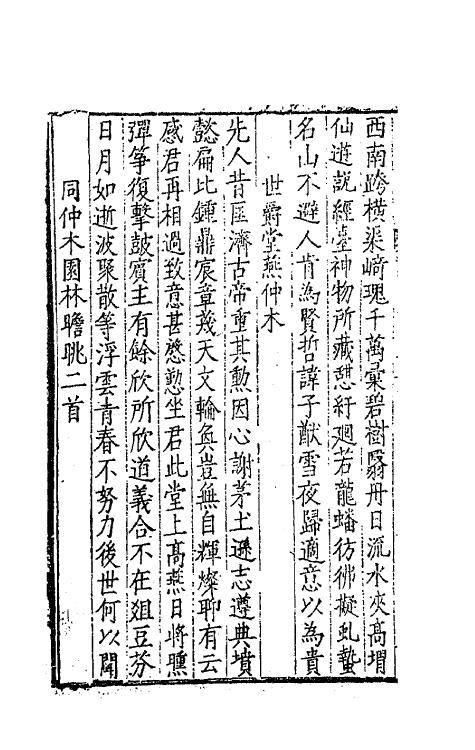 西南跨橫渠﨑瑰千萬彙碧樹翳丹日流水夾髙堳
仙遊說經臺神物所藏憇紆廻若龍蟠彷彿擬虬蟄
名山不避人肯為賢哲諱子猷雪夜歸適意以為貴
世爵堂燕仲木
先人昔匡濟古帝重其勲因心謝茅土遜志遵典墳
懿扁比鍾鼎宸章蔑天文輪奐豈無自輝燦聊有云
感君再相過致意甚慇懃坐君此堂上髙燕日將曛
彈筝復擊鼓賔主有餘欣所欣道義合不在爼豆芬
日月如逝波聚散等浮雲青春不努力後世何以聞
同仲木園林瞻眺二首